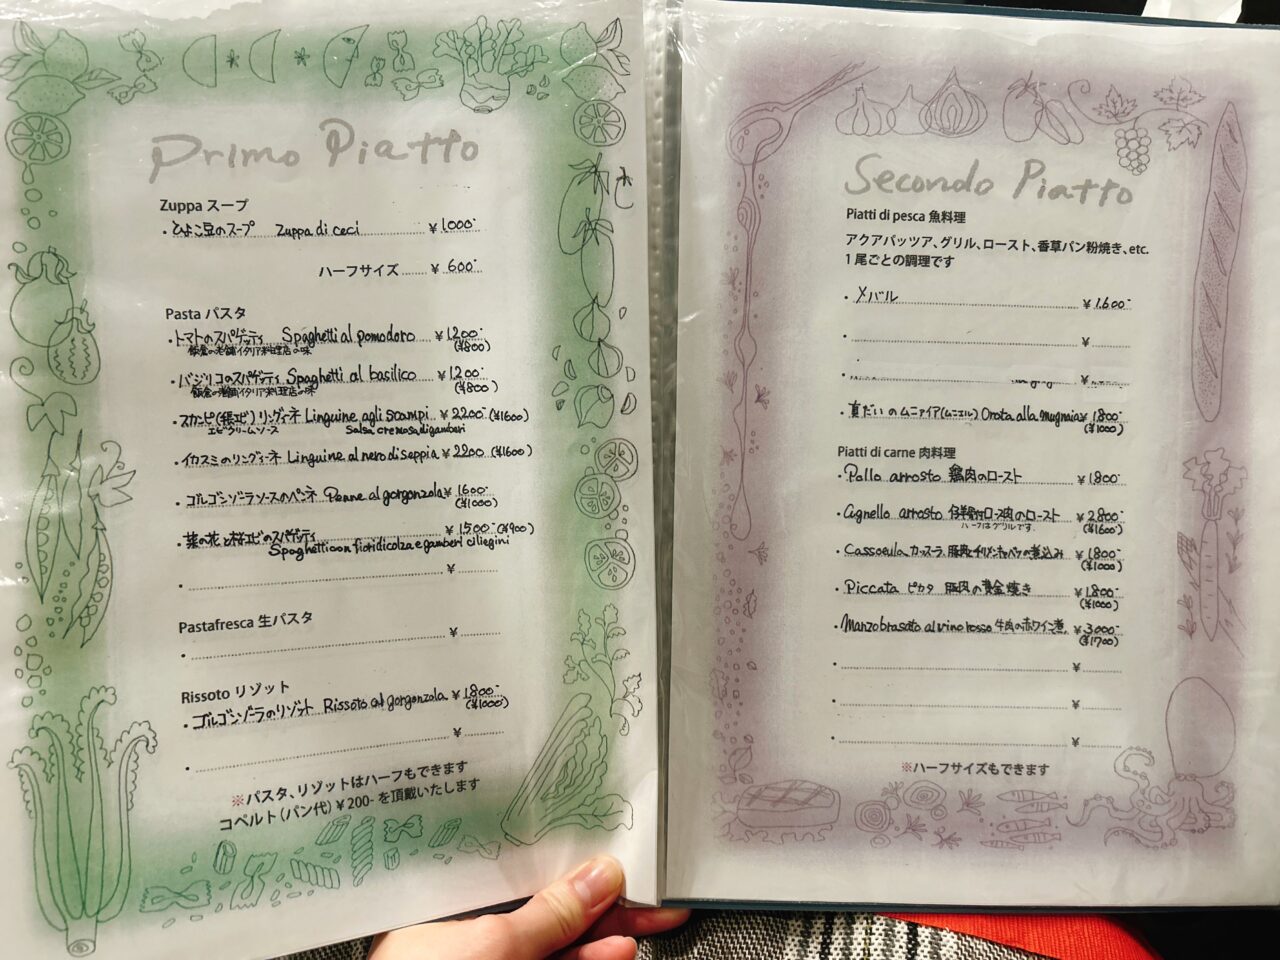 Primo Piatto
Zuppa スープ
・ひよこ豆のスープ Zuppa di ceci ¥1000-
ハーフサイズ ¥600-
Pasta パスタ
・トマトのスパゲッティ Spaghetti al pomodoro ¥1200-
の老舗イタリア料理店の味 (¥800)
・バジリコのスパゲッティ Spaghetti al basilico ¥1200-
の老舗イタリア料理店の味 (¥800)
・スカンピ(手長エビ)リングィーネ Linguine agli scampi ¥2200- (¥1600)
エビクリームソース Salsa cremosa di gamberi
・イカスミのリングィーネ Linguine al nero di seppia ¥2200 (¥1600)
・ゴルゴンゾーラソースのペンネ Penne al gorgonzola ¥1600-
(¥1000)
・菜の花と桜エビのスパゲティ ¥1500- (¥900)
Spaghetti con fiori di colza e gamberi ciliegini
・ ¥
Pastafresca 生パスタ
・ ¥
Rissoto リゾット
・ゴルゴンゾーラのリゾット Rissoto al gorgonzola ¥1800-
(¥1000)
・ ¥
※パスタ、リゾットはハーフもできます
コペルト(パン代)¥200-を頂戴いたします
Secondo Piatto
Piatti di pesca 魚料理
アクアパッツァ、グリル、ロースト、香草パン粉焼き、etc.
1尾ごとの調理です
・メバル ¥1.600-
・ ¥
・ ¥
・真だいのムニァイア(ムニエル) Orata alla mugnaia ¥1800-
(¥1000)
Piatti di carne 肉料理
・Pollo arrosto 鶏肉のロースト ¥1800
・Agnello arrosto 仔羊骨付ロース肉のロースト ¥2800-
ハーフはグリルです (¥1600)
・Cassoeula カッスーラ 豚肉とチリメンキャベツの煮込み ¥1800-
(¥1000)
・Piccata ピカタ 豚肉の黄金焼き ¥1800-
(¥1000)
・Manzo brasato al vino rosso 牛肉の赤ワイン煮 ¥3000-
(¥1700)
・ ¥
・ ¥
・ ¥
※ハーフサイズもできます